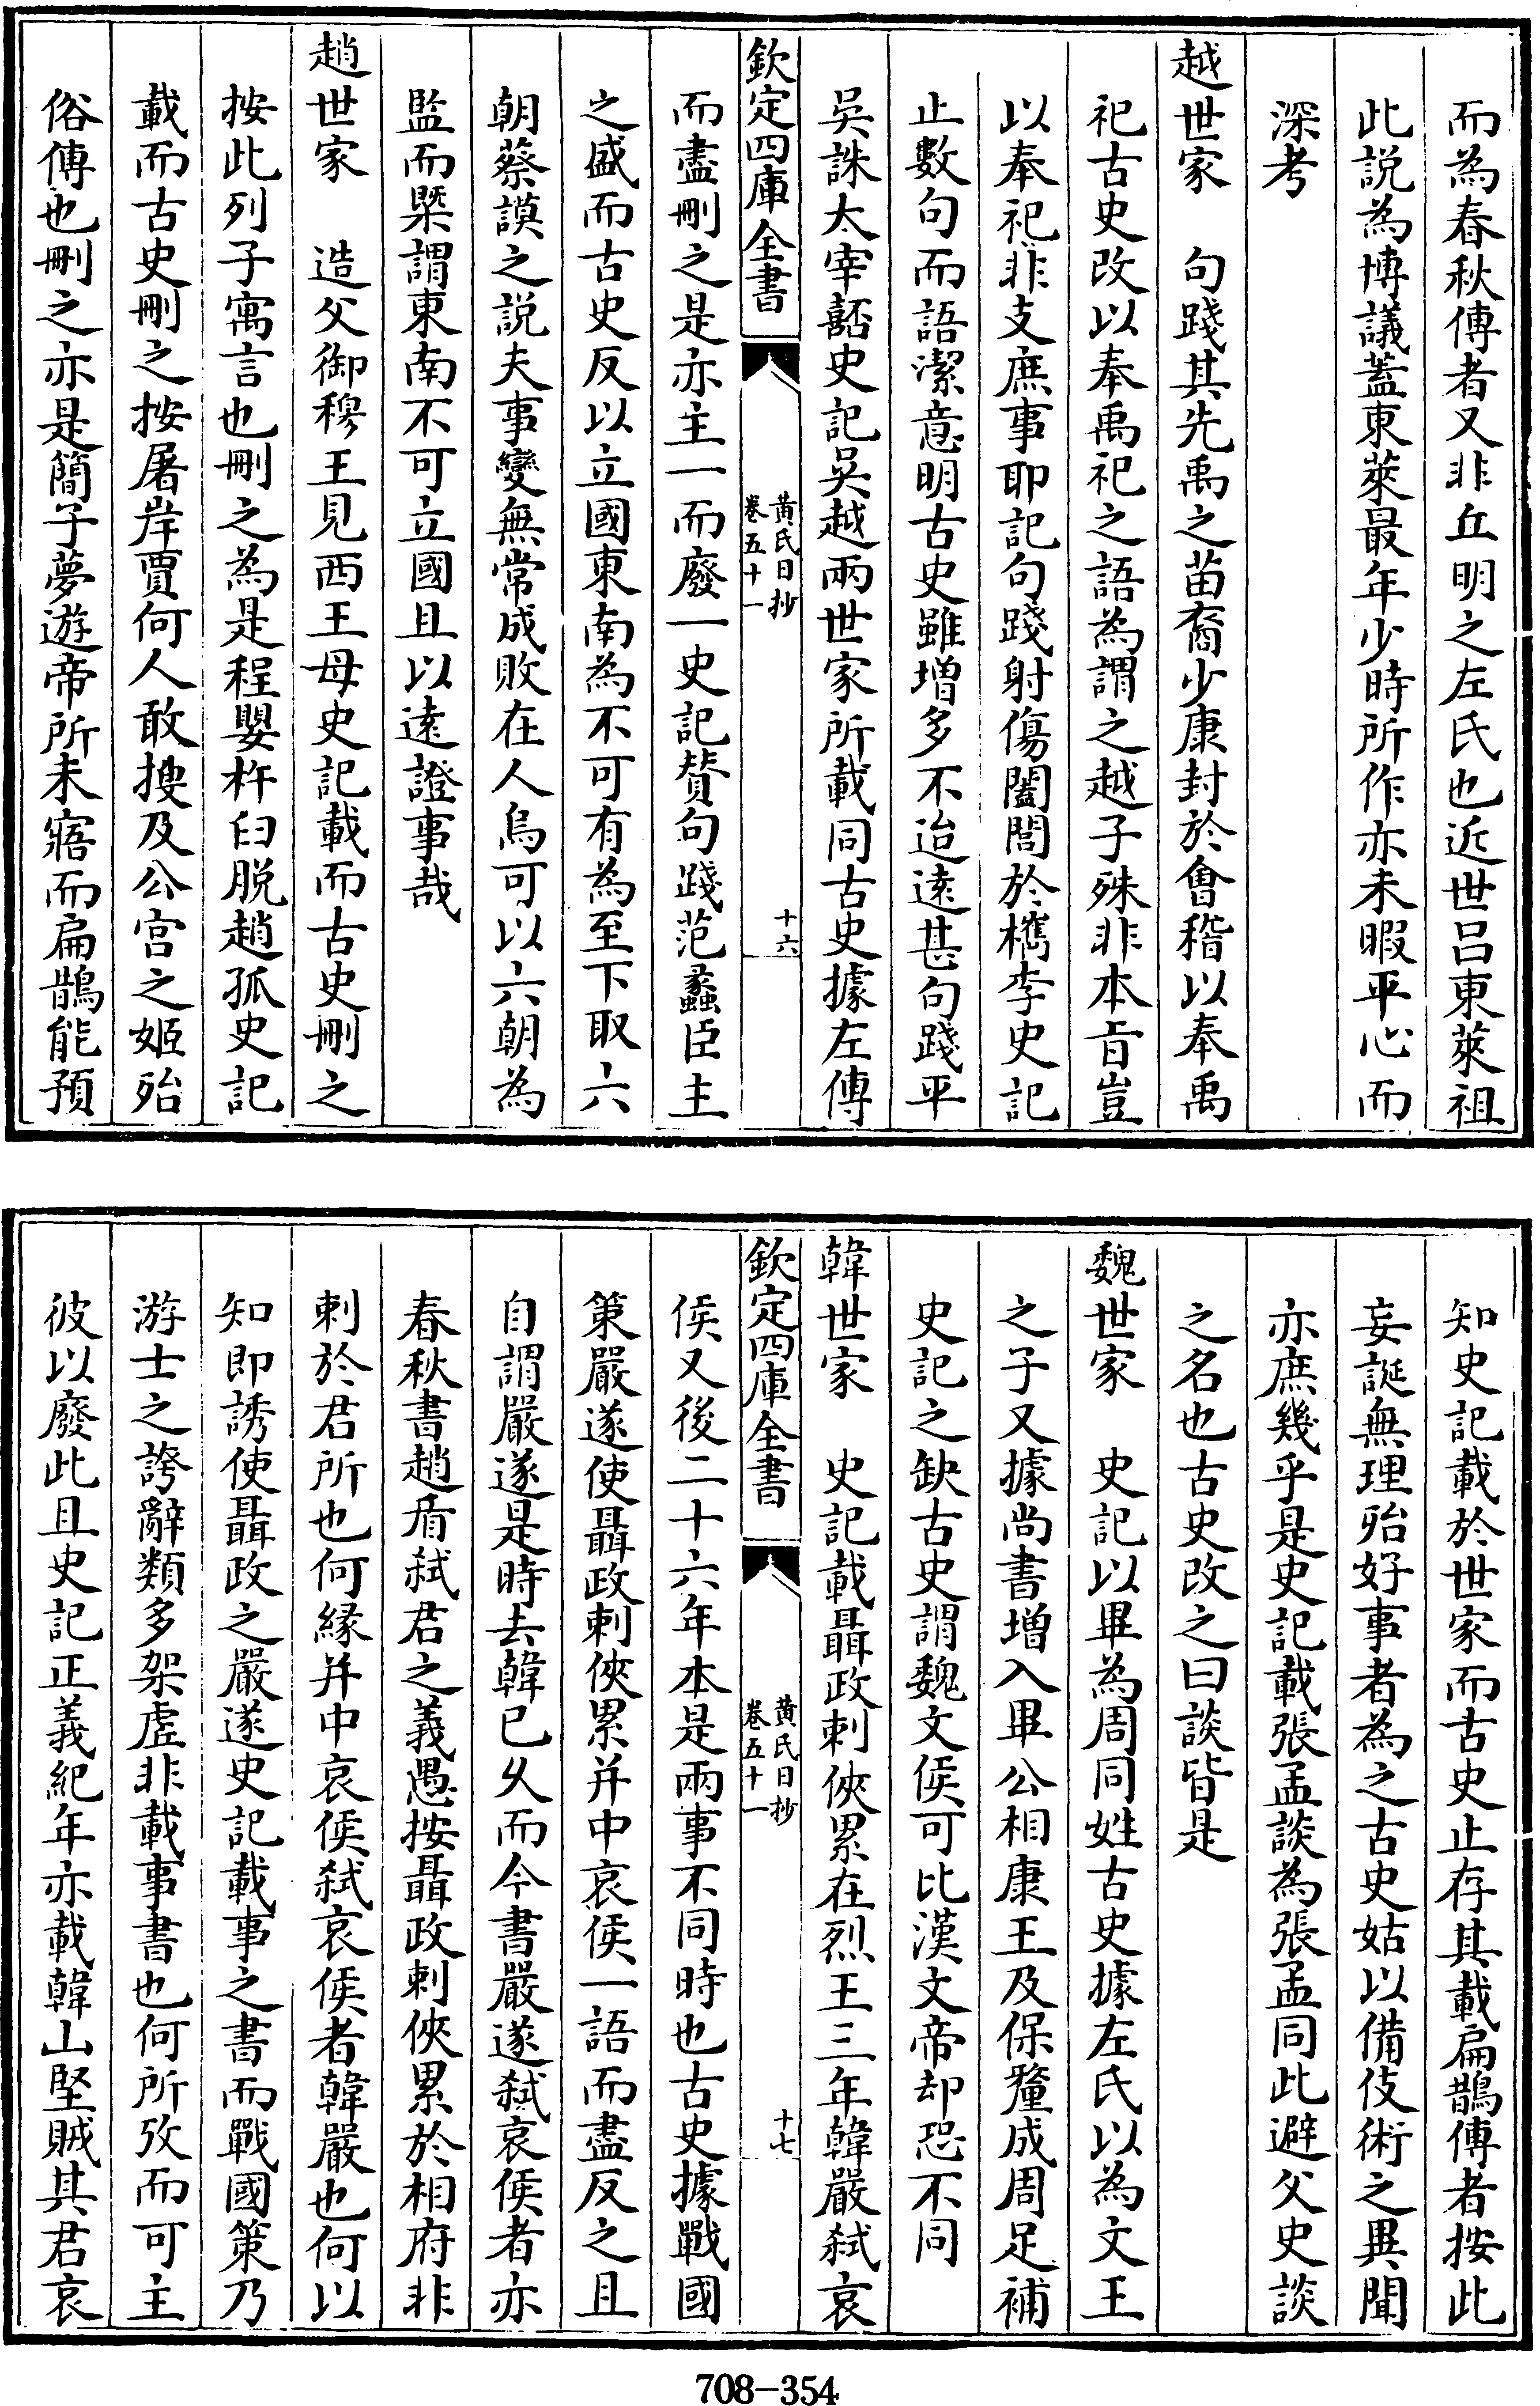 而為春秋傳者又非丘明之左氏也近世吕東萊祖
此説為博議蓋東萊最年少時所作亦未暇平心而
深考
越世家　句踐其先禹之苗裔少康封於㑹稽以奉禹
祀古史改以奉禹祀之語為謂之越子殊非本㫖豈
以奉祀非支庶事耶記句踐射傷闔閭於檇李史記
止數句而語潔意明古史雖増多不迨逺甚句踐平
吳誅太宰嚭史記吳越兩世家所載同古史據左傳
欽定四庫全書
黄氏日抄
卷五十一
十六
而盡刪之是亦主一而廢一史記賛句踐范蠡臣主
之盛而古史反以立國東南為不可有為至下取六
朝蔡謨之説夫事變無常成敗在人烏可以六朝為
監而槩謂東南不可立國且以逺證事哉
趙世家　造父御穆王見西王母史記載而古史刪之
按此列子寓言也刪之為是程嬰杵臼脱趙孤史記
載而古史刪之按屠岸賈何人敢搜及公宫之姬殆
俗傳也刪之亦是簡子夢遊帝所未寤而扁鵲能預
知史記載於世家而古史止存其載扁鵲傳者按此
妄誕無理殆好事者為之古史姑以備伎術之異聞
亦庶幾乎是史記載張孟談為張孟同此避父史談
之名也古史改之曰談皆是
魏世家　史記以畢為周同姓古史據左氏以為文王
之子又據尚書増入畢公相康王及保釐成周足補
史記之缺古史謂魏文侯可比漢文帝却恐不同
韓世家　史記載聶政刺俠累在烈王三年韓嚴弑哀
欽定四庫全書
黄氏日抄
卷五十一
十七
侯又後二十六年本是兩事不同時也古史據戰國
策嚴遂使聶政刺俠累并中哀侯一語而盡反之且
自謂嚴遂是時去韓已久而今書嚴遂弑哀侯者亦
春秋書趙盾弑君之義愚按聶政刺俠累於相府非
刺於君所也何縁并中哀侯弑哀侯者韓嚴也何以
知即誘使聶政之嚴遂史記載事之書而戰國策乃
游士之誇辭類多架虚非載事書也何所攷而可主
彼以廢此且史記正義紀年亦載韓山堅賊其君哀
708-354